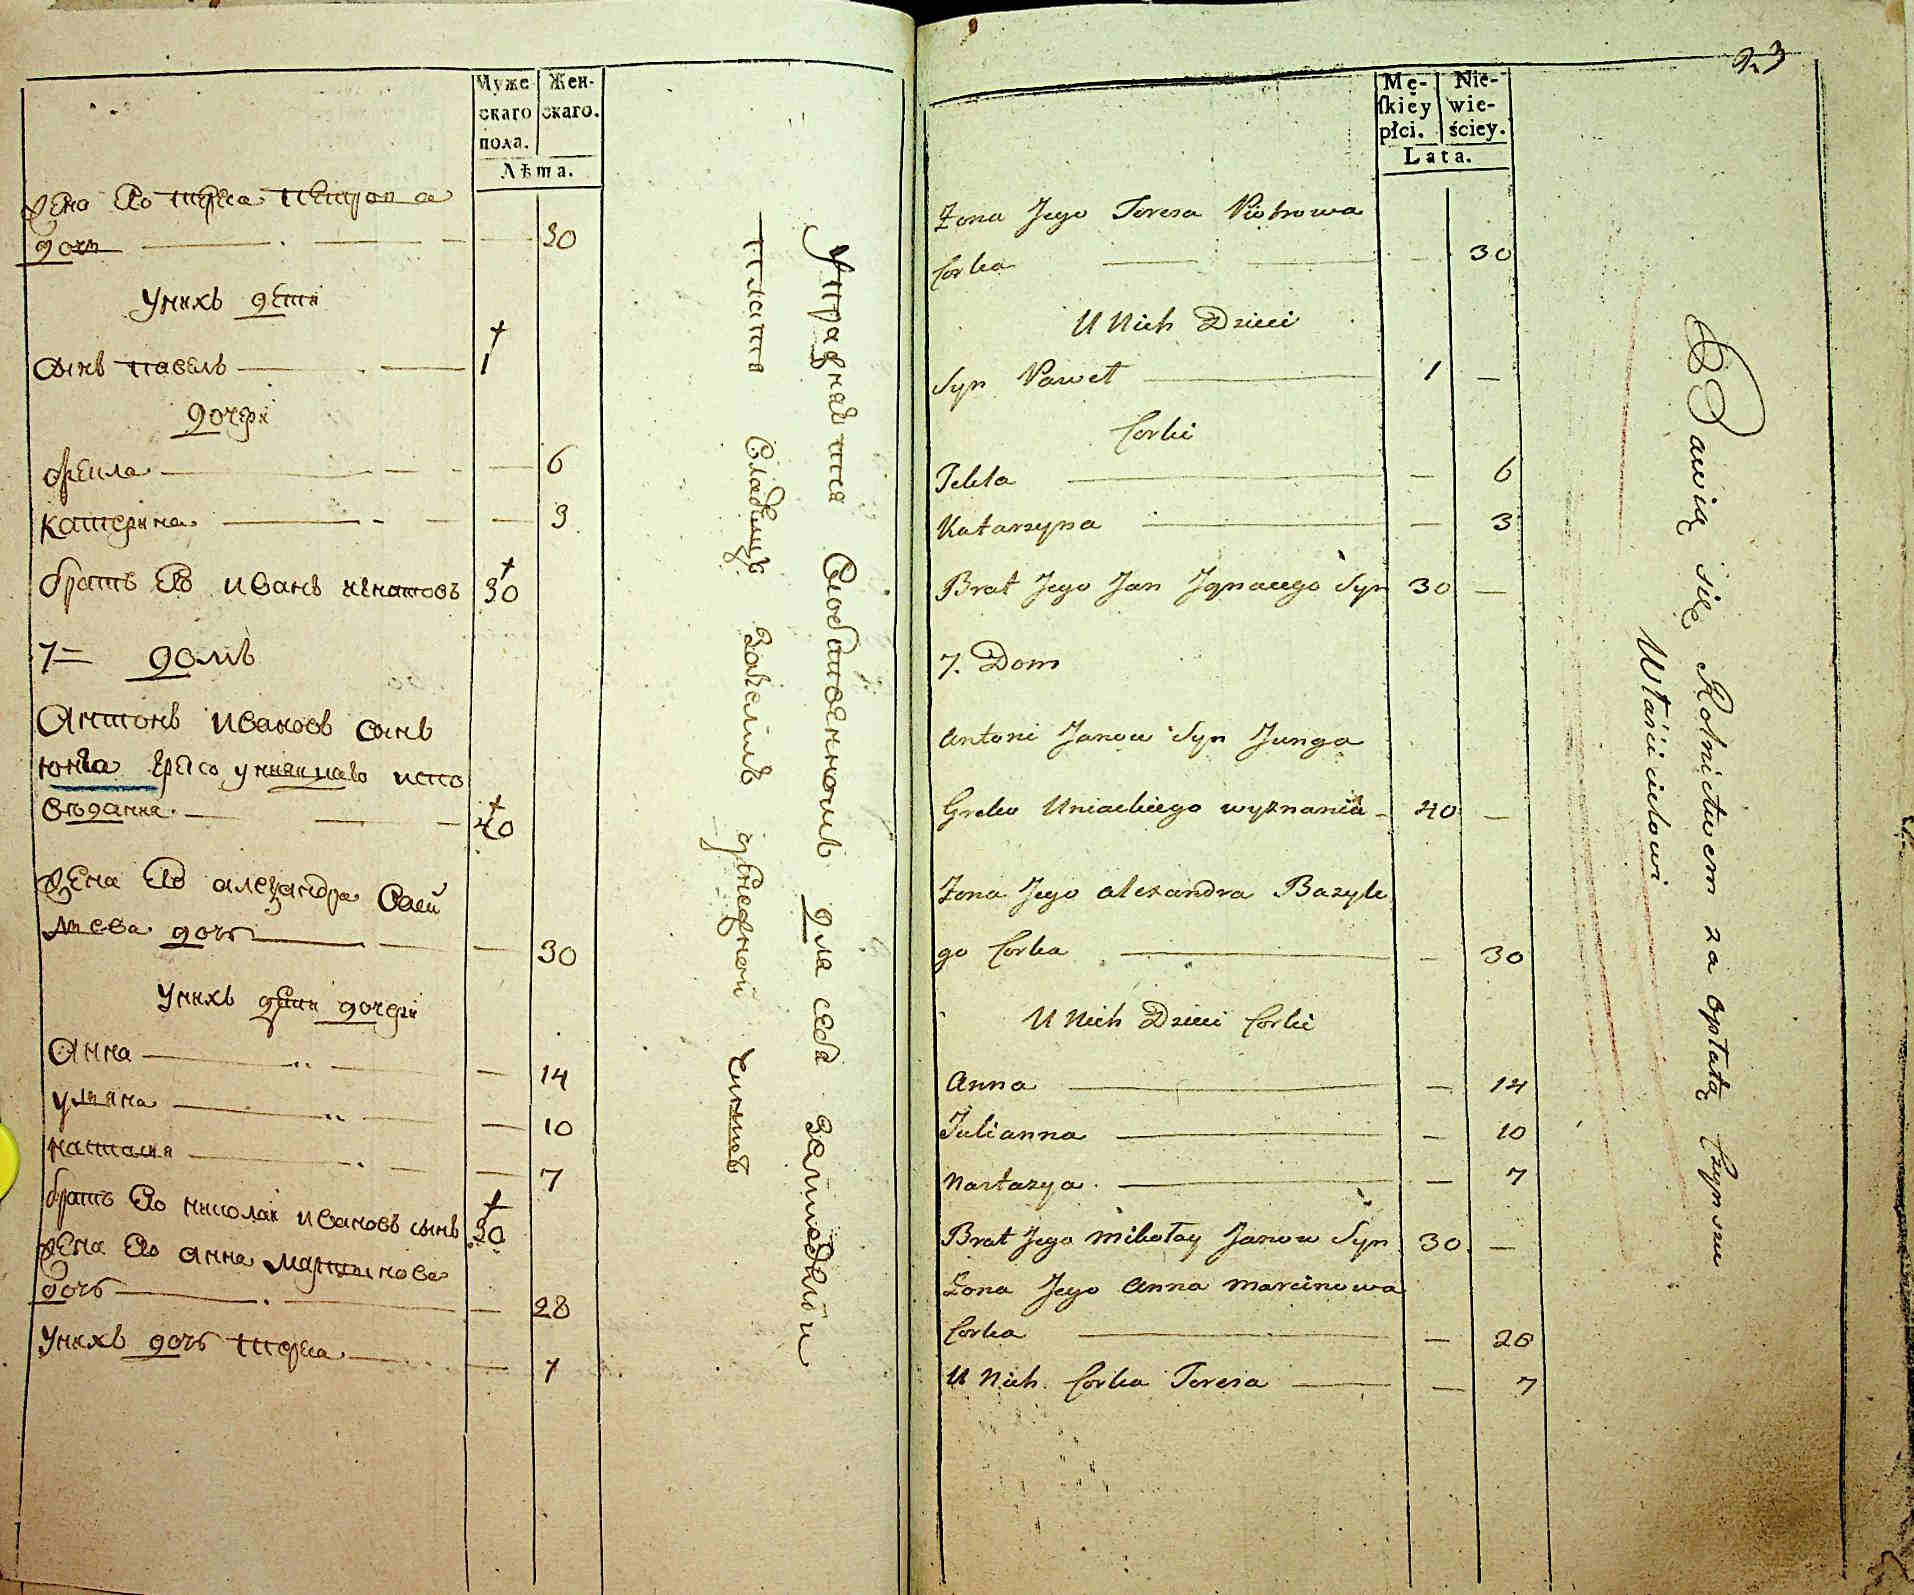 Муже
скаго
пола.
Жен-
скаго.
Лѣта.
Жена Его тереса петрова
дочь 30
Унихъ дети
Сынъ павелъ 1
дочери
6
Катерина 3
братъ Его иванъ игнатовъ 30
7= домъ
Антонъ ивановъ сынъ
юнга греко униятцкаго испо
ведания 40
Жена Его александра васи
лиева дочь 30
Унихъ дети дочери
Анна 14
улияна 10
7
братъ Его николаи ивановъ сынъ 30
Жена Его анна мартинова
дочь 28
Унихъ дочь тереса 7
для себа
платя
чиншъ
23
Mę-
ſkiey
płci.
Nie-
wie-
ściey.
Lata.
Żona Jego Teresa Piotrowa
Corka 30
U Nich Dzieci
Syn Paweł 1 —
Corki
Tekla — 6
Katarzyna — 3
Brat Jego Jan Jgnacego Syn 30 —
7. Dom
Antoni Janow Syn Junga
Greko Uniackiego wyznania 40 —
Żona Jego Alexandra Bazyle
go Corka — 30
U Nich Dzieci Corki
Anna — 14
Julianna — 10
Nastazya — 7
Brat Jego Mikołay Janow Syn 30 —
Żona Jego Anna Marcinowa
Corka — 28
U Nich Corka Teresa — 7
Bawią się Rolnictwem za opłatą Czynszu
Właścicielowi